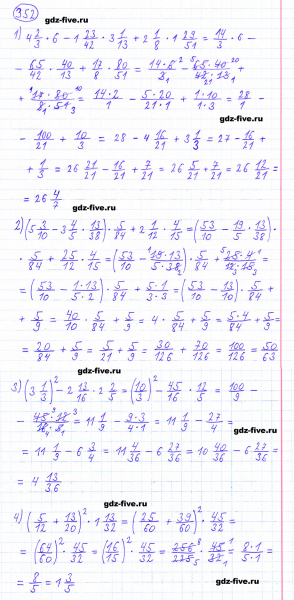 352
gdz-five.ru
1) 4 2/3 · 6 - 1 23/42 · 3 1/13 + 2 1/8 · 1 29/51 = 14/3 · 6 -
gdz-five.ru
- 65/42 · 40/13 + 17/8 · 80/51 = 14·6²/3₁ - ⁵65·40²⁰/42₂₁·13₁ +
+ ¹17·80¹⁰/₁8·51₃ = 14·2/1 - 5·20/21·1 + 1·10/1·3 = 28/1 -
gdz-five.ru
- 100/21 + 10/3 = 28 - 4 16/21 + 3 1/3 = 27 - 16/21 +
+ 1/3 = 26 21/21 - 16/21 + 7/21 = 26 5/21 + 7/21 = 26 12/21 =
= 26 4/7
gdz-five.ru
2) (5 3/10 - 3 4/5 · 13/38) · 5/84 + 2 1/12 · 4/15 = (53/10 - 19/5 · 13/38) ·
· 5/84 + 25/12 · 4/15 = (53/10 - ¹19·13/5·38₂) · 5/84 + ⁵25·4¹/₃12·15₃ =
= (53/10 - 1·13/5·2) · 5/84 + 5·1/3·3 = (53/10 - 13/10) · 5/84 +
+ 5/9 = 40/10 · 5/84 + 5/9 = 4 · 5/84 + 5/9 = 5·4/84 + 5/9 =
= 20/84 + 5/9 = 5/21 + 5/9 = 30/126 + 70/126 = 100/126 = 50/63
gdz-five.ru
3) (3 1/3)² - 2 13/16 · 2 2/5 = (10/3)² - 45/16 · 12/5 = 100/9 -
- ⁹45·12³/₄16·5₁ = 11 1/9 - 9·3/4·1 = 11 1/9 - 27/4 =
gdz-five.ru
= 11 1/9 - 6 3/4 = 11 4/36 - 6 27/36 = 10 40/36 - 6 27/36 =
= 4 13/36
gdz-five.ru
4) (5/12 + 13/20)² · 1 13/32 = (25/60 + 39/60)² · 45/32 =
= (64/60)² · 45/32 = (16/15)² · 45/32 = 256⁸/225₅ · 45¹/32₁ = 8·1/5·1 =
= 8/5 = 1 3/5
gdz-five.ru